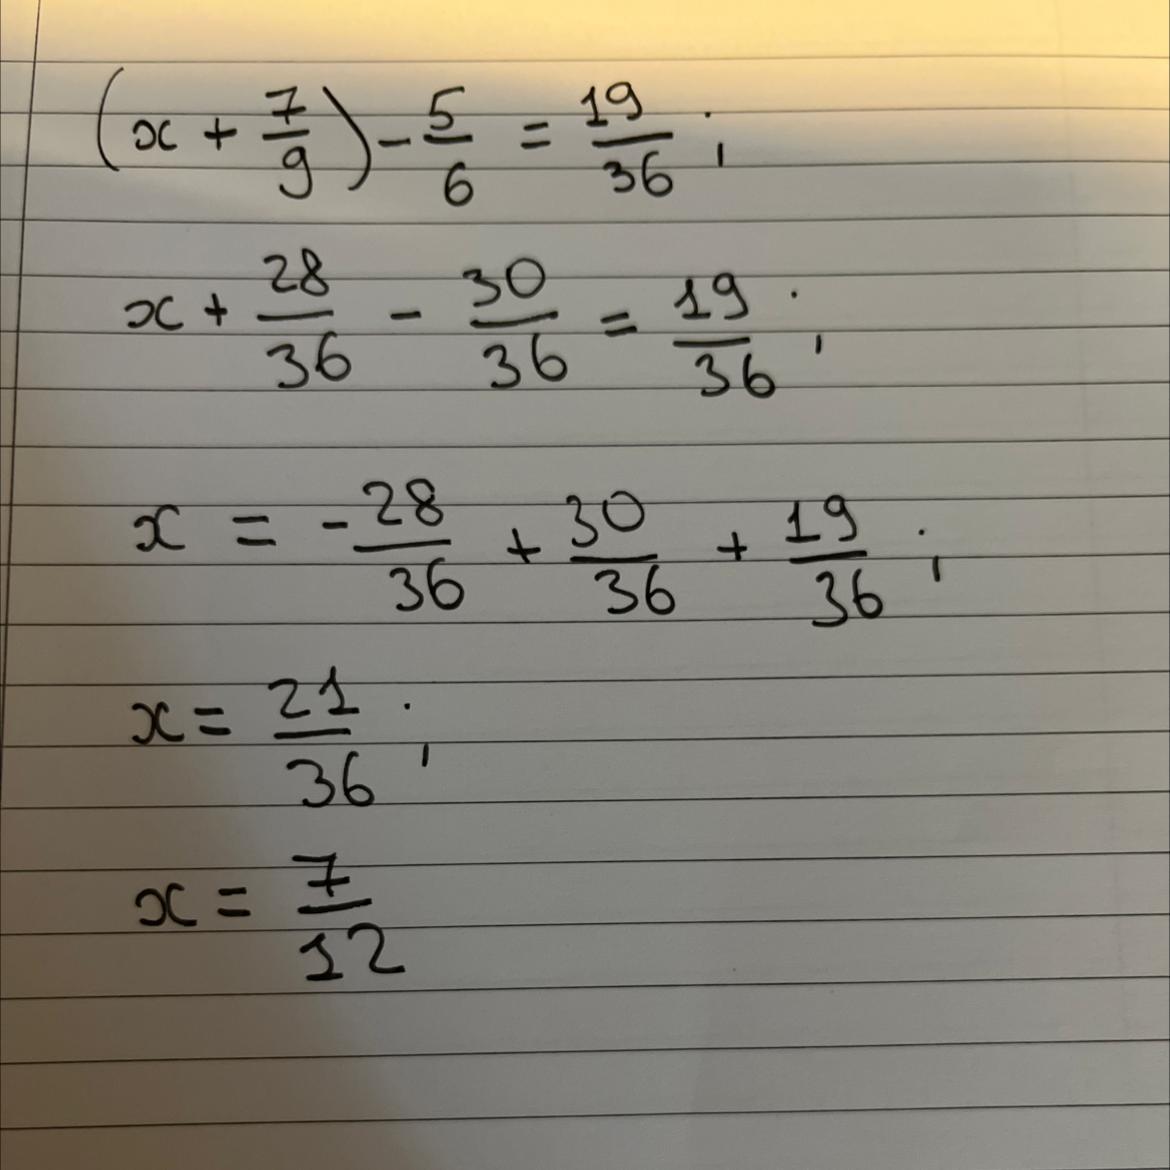 (x + 7/9) - 5/6 = 19/36;
x + 28/36 - 30/36 = 19/36;
x = -28/36 + 30/36 + 19/36;
x = 21/36;
x = 7/12